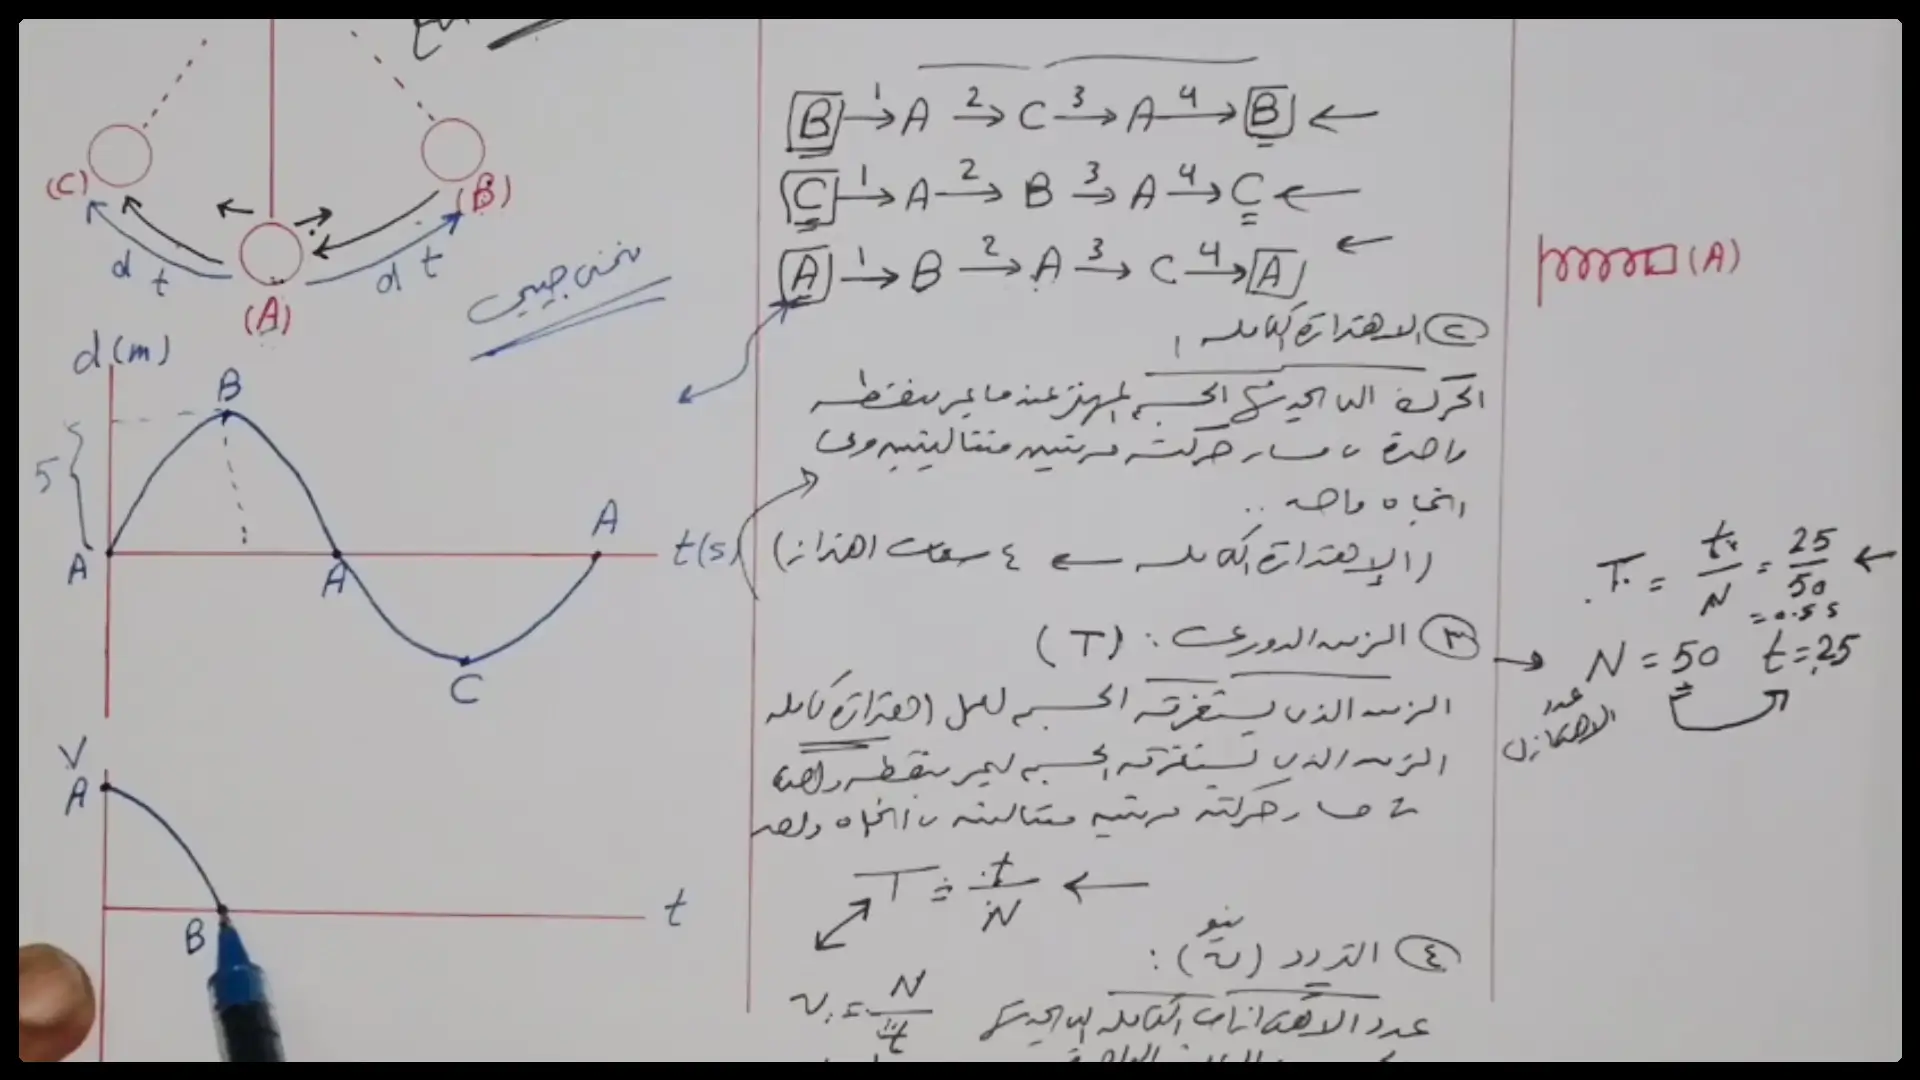 (C)
(B)
d t
d t
(A)
منحنى جيبى
d (m)
B
5
A
A
A
t(s)
C
V
A
B
t
B 1→ A 2→ C 3→ A 4→ B ←
C 1→ A 2→ B 3→ A 4→ C ←
A 1→ B 2→ A 3→ C 4→ A ←
② الاهتزازة الكاملة :
الحركة التى يحدثها الجسم المهتز عندما يمر بنقطة
واحدة فى مسار حركته مرتين متتاليتين وفى
اتجاه واحد ..
(الإهتزازة الكاملة ← ٤ سعات اهتزاز)
③ الزمن الدورى : (T)
الزمن الذى يستغرقه الجسم لعمل اهتزازة كاملة
الزمن الذى يستغرقه الجسم ليمر بنقطة واحدة
فى مسار حركته مرتين متتاليتين فى اتجاه واحد
T = t/N ←
④ التردد (ن) :
نيو
ν = N/t
عدد الاهتزازات الكاملة التى يحدثها
(A)
T = t/N = 25/50 ←
= 0.5 s
→ N = 50 t = 25
عدد
الاهتزازات